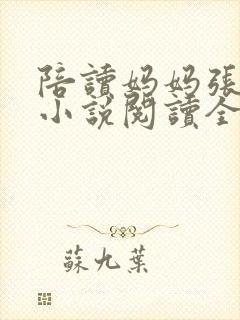 陪讀媽媽張
小說閱讀全
蘇九葉